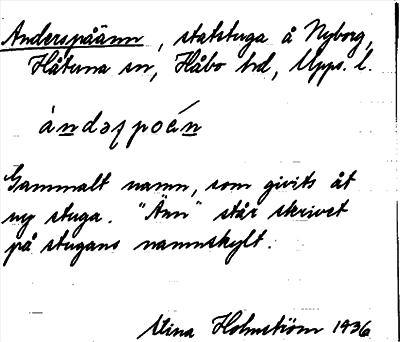 Anderspåänn, statstuga å Nyborg,
Håtuna sn, Håbo hd, Upps. l.
àndəʃpoén
Gammalt namn, som givits åt
ny stuga. "Änn" står skrivet
på stugans namnskylt.
Stina Holmström 1936